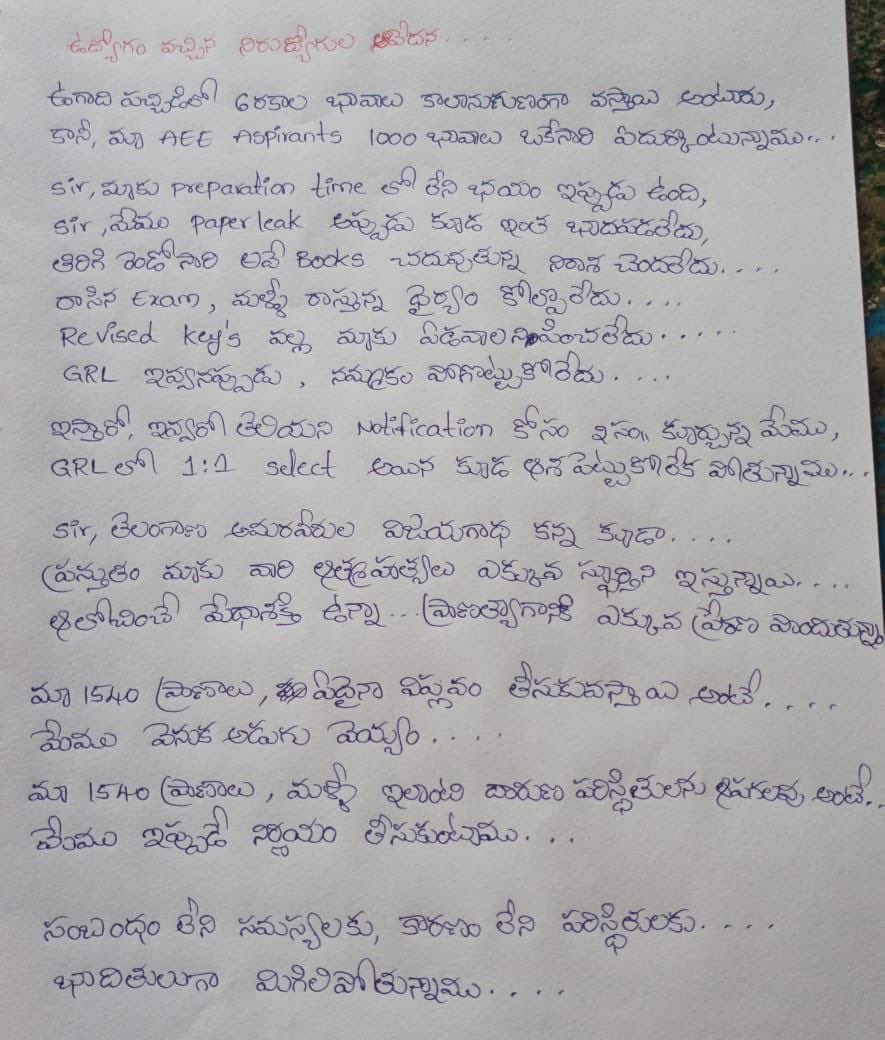 ఉద్యోగం వచ్చిన నిరుద్యోగుల ఆవేదన.....
ఉగాది పచ్చడిలో 6రకాల భావాలు కాలానుగుణంగా వస్తాయి అంటారు,
కానీ, మా AEE Aspirants 1000 భావాలు ఒకేసారి ఏదుర్కొంటున్నాము...
Sir, మాకు preparation time లో లేని భయం ఇప్పుడు ఉంది,
Sir, మేము paper leak అప్పుడు కూడ ఇంత భాదపడలేదు,
తిరిగి రెండోసారి అవే Books చదువుతున్న నిరాశ చెందలేదు....
రాసిన Exam, మళ్ళీ రాస్తున్న ధైర్యం కోల్పోలేదు....
Revised key's వల్ల మాకు ఏడవాలనిపించలేదు.....
GRL ఇవ్వనప్పుడు, నమ్మకం పోగొట్టుకోలేదు....
ఇస్తారో, ఇవ్వరో తెలియని Notification కోసం 2సం॥ కూర్చున్న మేము,
GRL లో 1:1 select అయిన కూడ ఆశ పెట్టుకోలేక పోతున్నాము...
Sir, తెలంగాణ అమరవీరుల విజయగాధ కన్న కూడా....
ప్రస్తుతం మాకు వారి ఆత్మహత్యలు ఎక్కువ స్ఫూర్తిని ఇస్తున్నాయి....
ఆలోచించే మేధాశక్తి ఉన్నా...ప్రాణత్యాగానికి ఎక్కువ ప్రేరణ పొందుతున్నా
మా 1540 ప్రాణాలు, ఏదైనా విప్లవం తీసుకువస్తాయి అంటే....
మేము వెనుక అడుగు వెయ్యం....
మా 1540 ప్రాణాలు, మళ్ళీ ఇలాంటి దారుణ పరిస్థితులను ఆపగలవు అంటే..
మేము ఇప్పుడే నిర్ణయం తీసుకుంటాము....
సంబంధం లేని సమస్యలకు, కారణం లేని పరిస్థితులకు....
భాదితులుగా మిగిలిపోతున్నాము....